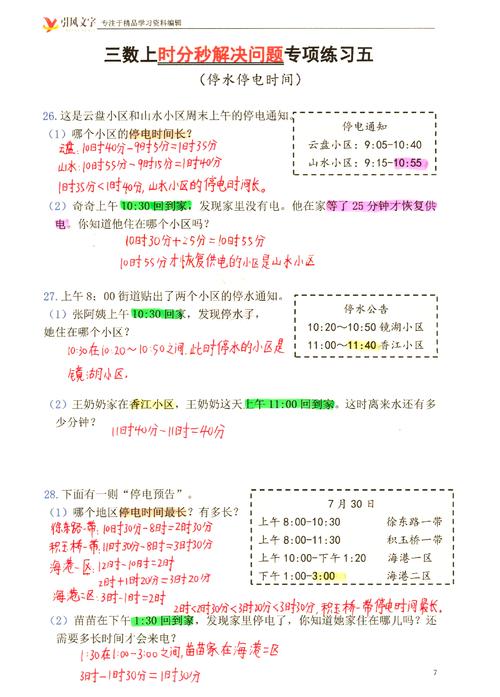 引风文字 专注于精品学习资料编辑
三数上时分秒解决问题专项练习五
(停水停电时间)
26.这是云盘小区和山水小区周末上午的停电通知。
(1)哪个小区的停电时间长?
云盘:10时40分-9时5分=1时35分
山水:10时55分-9时15分=1时40分
1时35分<1时40分,山水小区的停电时间长。
停电通知
云盘小区:9:05-10:40
山水小区:9:15-10:55
(2)奇奇上午10:30回到家,发现家里没有电。他在家等了25分钟才恢复供
电。你知道他住在哪个小区吗?
10时30分+25分=10时55分
10时55分才恢复供电的小区是山水小区
27.上午8:00街道贴出了两个小区的停水通知。
(1)张阿姨上午10:30回家,发现停水了,
她住在哪个小区?
10:30在10:20~10:50之间,此时停水的小区是
镜湖小区.
停水公告
10:20~10:50 镜湖小区
11:00~11:40 香江小区
(2)王奶奶家在香江小区,王奶奶这天上午11:00回到家。这时离来水还有多
少分钟?
11时40分-11时=40分
28.下面有一则“停电预告”。
(1)哪个地区停电时间最长?有多长?
徐东路一带:10时30分-8时=2时30分
积玉桥一带:11时30分-8时=3时30分
海港一区:12时-10时=2时
2时+1时20分=3时20分
海港二区:3时-1时=2时
7月30日
上午8:00-10:30 徐东路一带
上午8:00-11:30 积玉桥一带
上午10:00-下午1:20 海港一区
下午1:00-3:00 海港二区
2时<2时30分<3时20分<3时30分,积玉桥一带停电时间最长.
(2)苗苗在下午1:30回到家,发现家里停电了,你知道她家住在哪儿吗?还
需要多长时间才会来电?
1:30在1:00-3:00之间,苗苗家在海港二区
3时-1时30分=1时30分
7